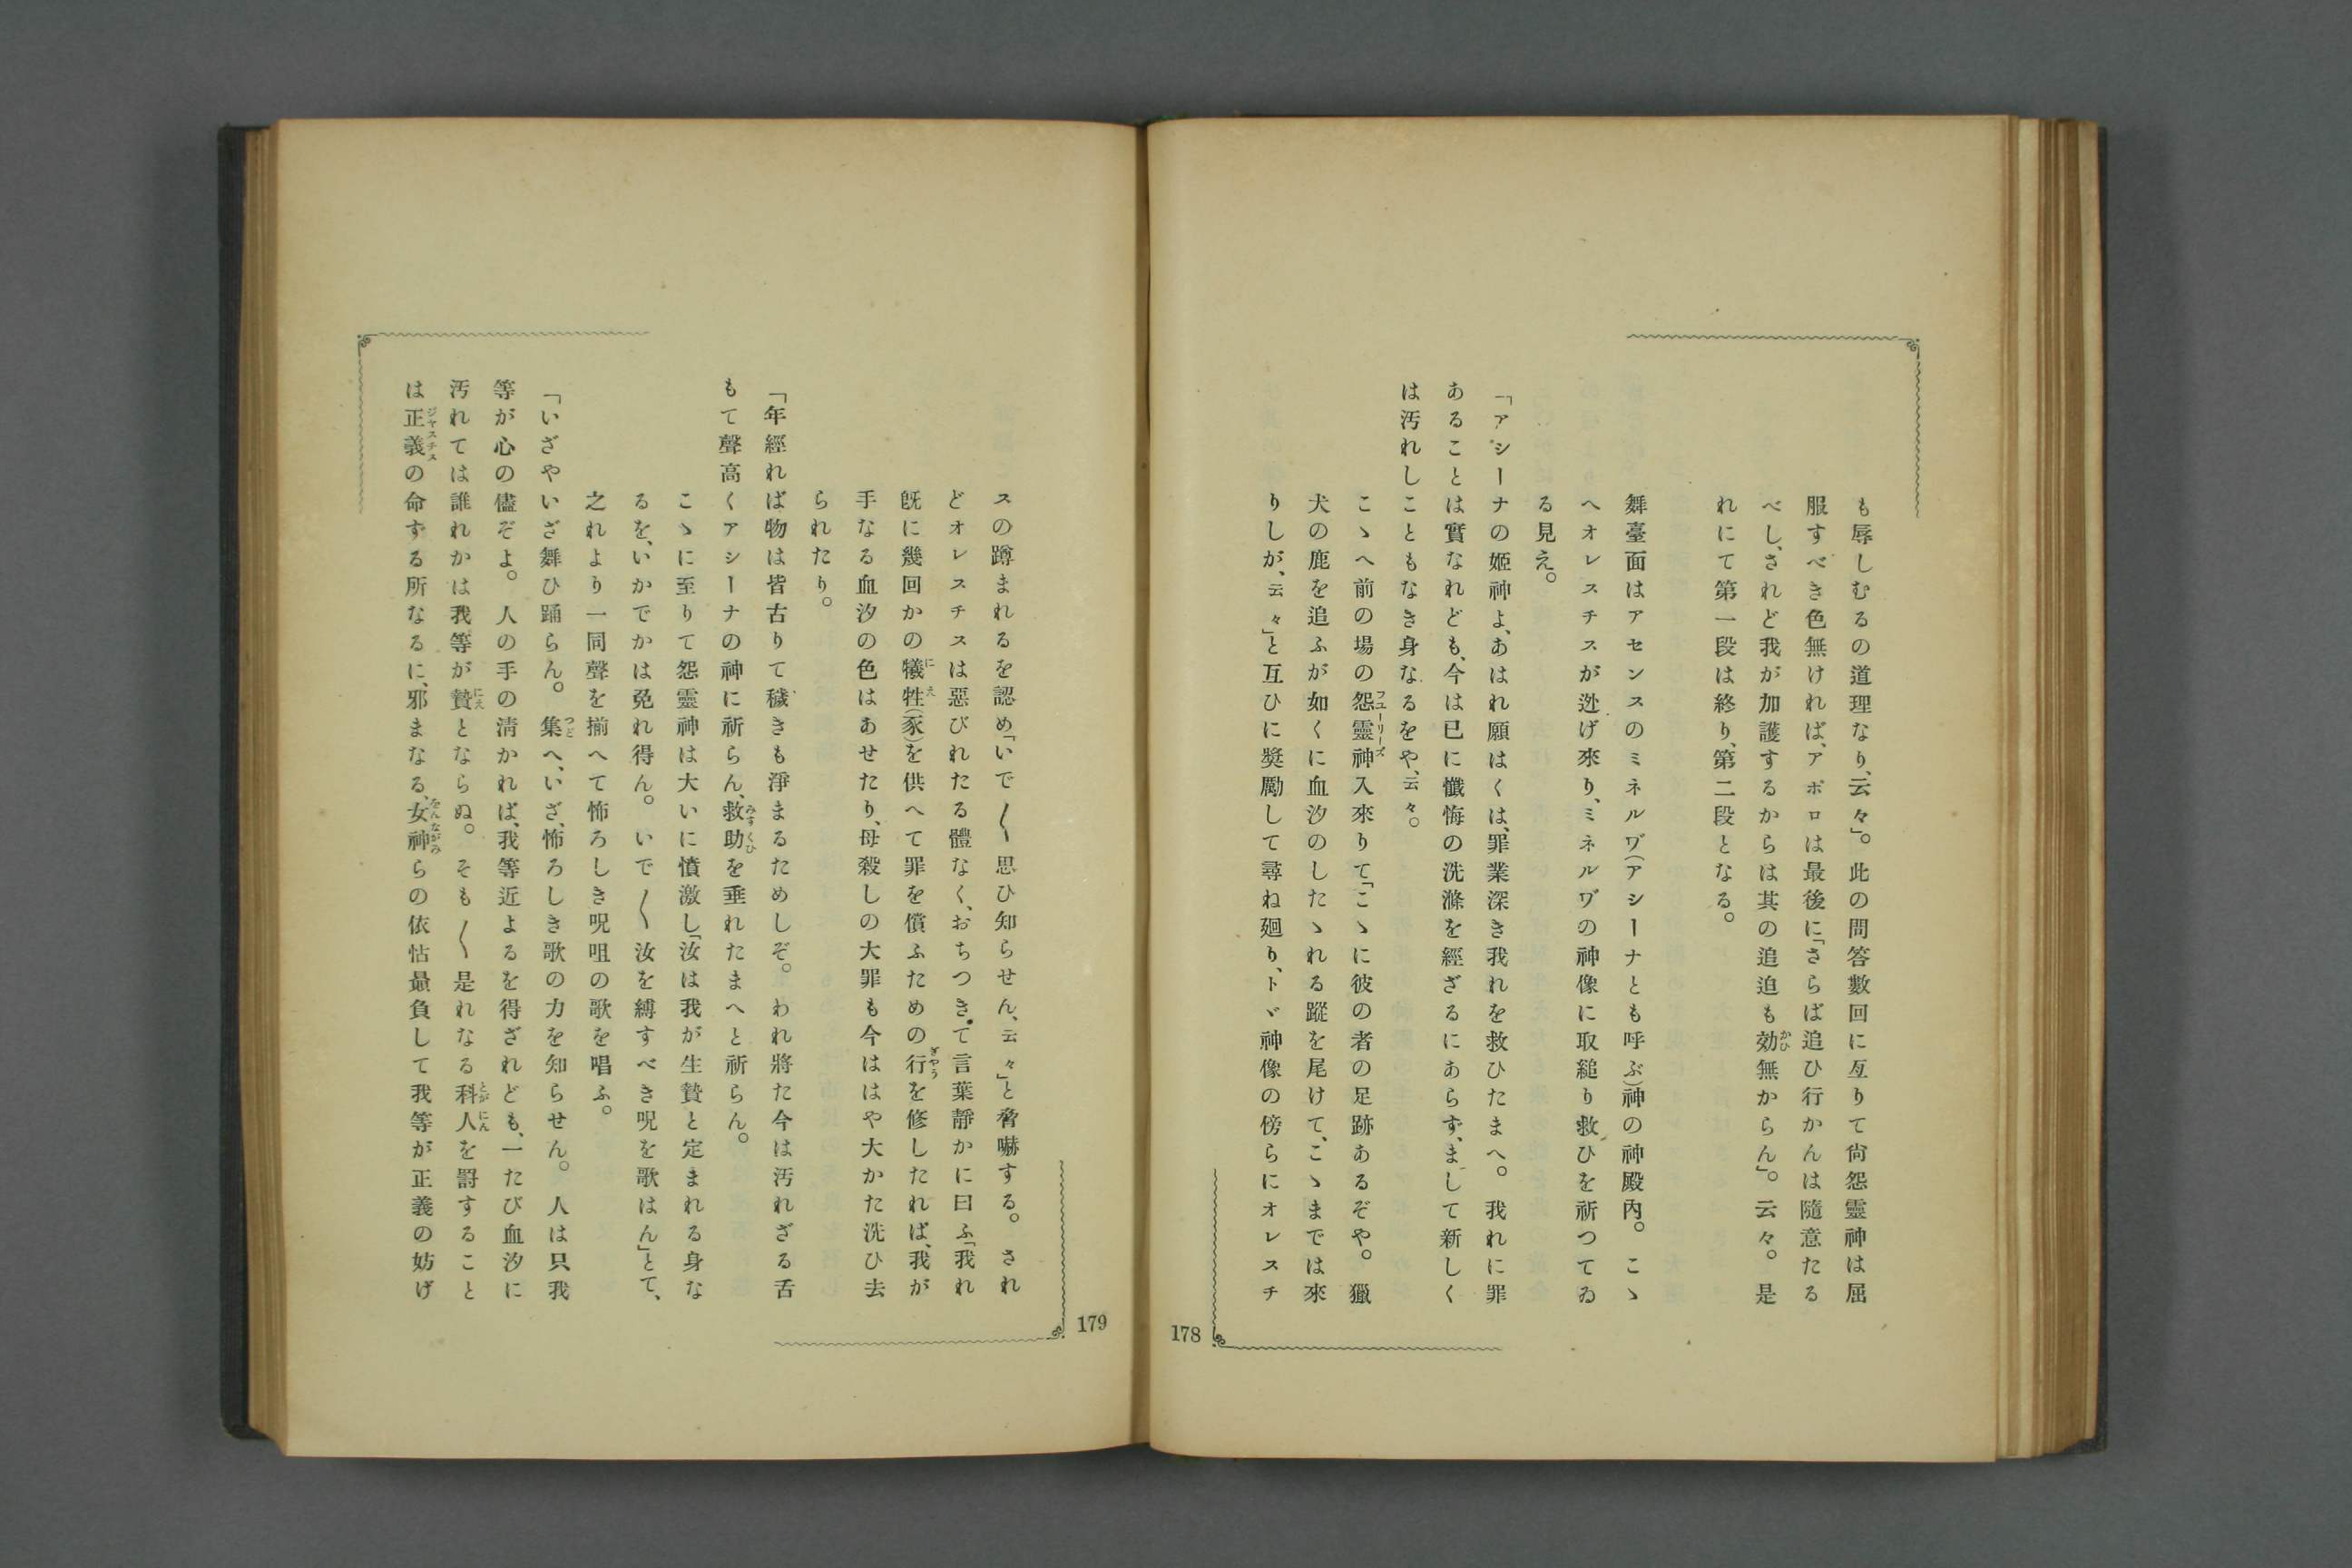 も辱しむるの道理なり、云々」。此の問答數回に亙りて尙怨靈神は屈
服すべき色無ければ、アポロは最後に「さらば追ひ行かんは隨意たる
べし、されど我が加護するからは其の追迫も効かひ無からん」。云々。是
れにて第一段は終り、第二段となる。
舞臺面はアセンスのミネルヷ(アシーナとも呼ぶ)神の神殿內。こゝ
へオレスチスが迯げ來り、ミネルヷの神像に取縋り救ひを祈つてゐ
る見え。
「アシーナの姬神よ、あはれ願はくは、罪業深き我れを救ひたまへ。我れに罪
あることは實なれども、今は已に懺悔の洗滌を經ざるにあらず、まして新しく
は汚れしこともなき身なるをや、云々。
こゝへ前の場の怨靈神フユーリーズ入來りて「こゝに彼の者の足跡あるぞや。獵
犬の鹿を追ふが如くに血汐のしたゝれる蹤を尾けて、こゝまでは來
りしが、云々」と互ひに奬勵して尋ね廻り、トヾ神像の傍らにオレスチ
178
スの蹲まれるを認め「いで〳〵思ひ知らせん、云々」と脅嚇する。され
どオレスチスは惡びれたる體なく、おちつきて言葉靜かに曰ふ「我れ
旣に幾回かの犧牲にえ(豕)を供へて罪を償ふための行ぎやうを修したれば、我が
手なる血汐の色はあせたり、母殺しの大罪も今ははや大かた洗ひ去
られたり。
「年經れば物は皆古りて穢きも淨まるためしぞ。われ將た今は汚れざる舌
もて聲高くアシーナの神に祈らん、救助みすくひを垂れたまへと祈らん。
こゝに至りて怨靈神は大いに憤激し「汝は我が生贄と定まれる身な
るを、いかでかは免れ得ん。いで〳〵汝を縛すべき呪を歌はん」とて、
之れより一同聲を揃へて怖ろしき呪咀の歌を唱ふ。
「いざやいざ舞ひ踊らん。集つどへ、いざ、怖ろしき歌の力を知らせん。人は只我
等が心の儘ぞよ。人の手の淸かれば、我等近よるを得ざれども、一たび血汐に
汚れては誰れかは我等が贄にえとならぬ。そも〳〵是れなる科人とがにんを罰すること
は正義ジヤスチスの命ずる所なるに、邪まなる、女神をんながみらの依怙最負して我等が正義の妨げ
179